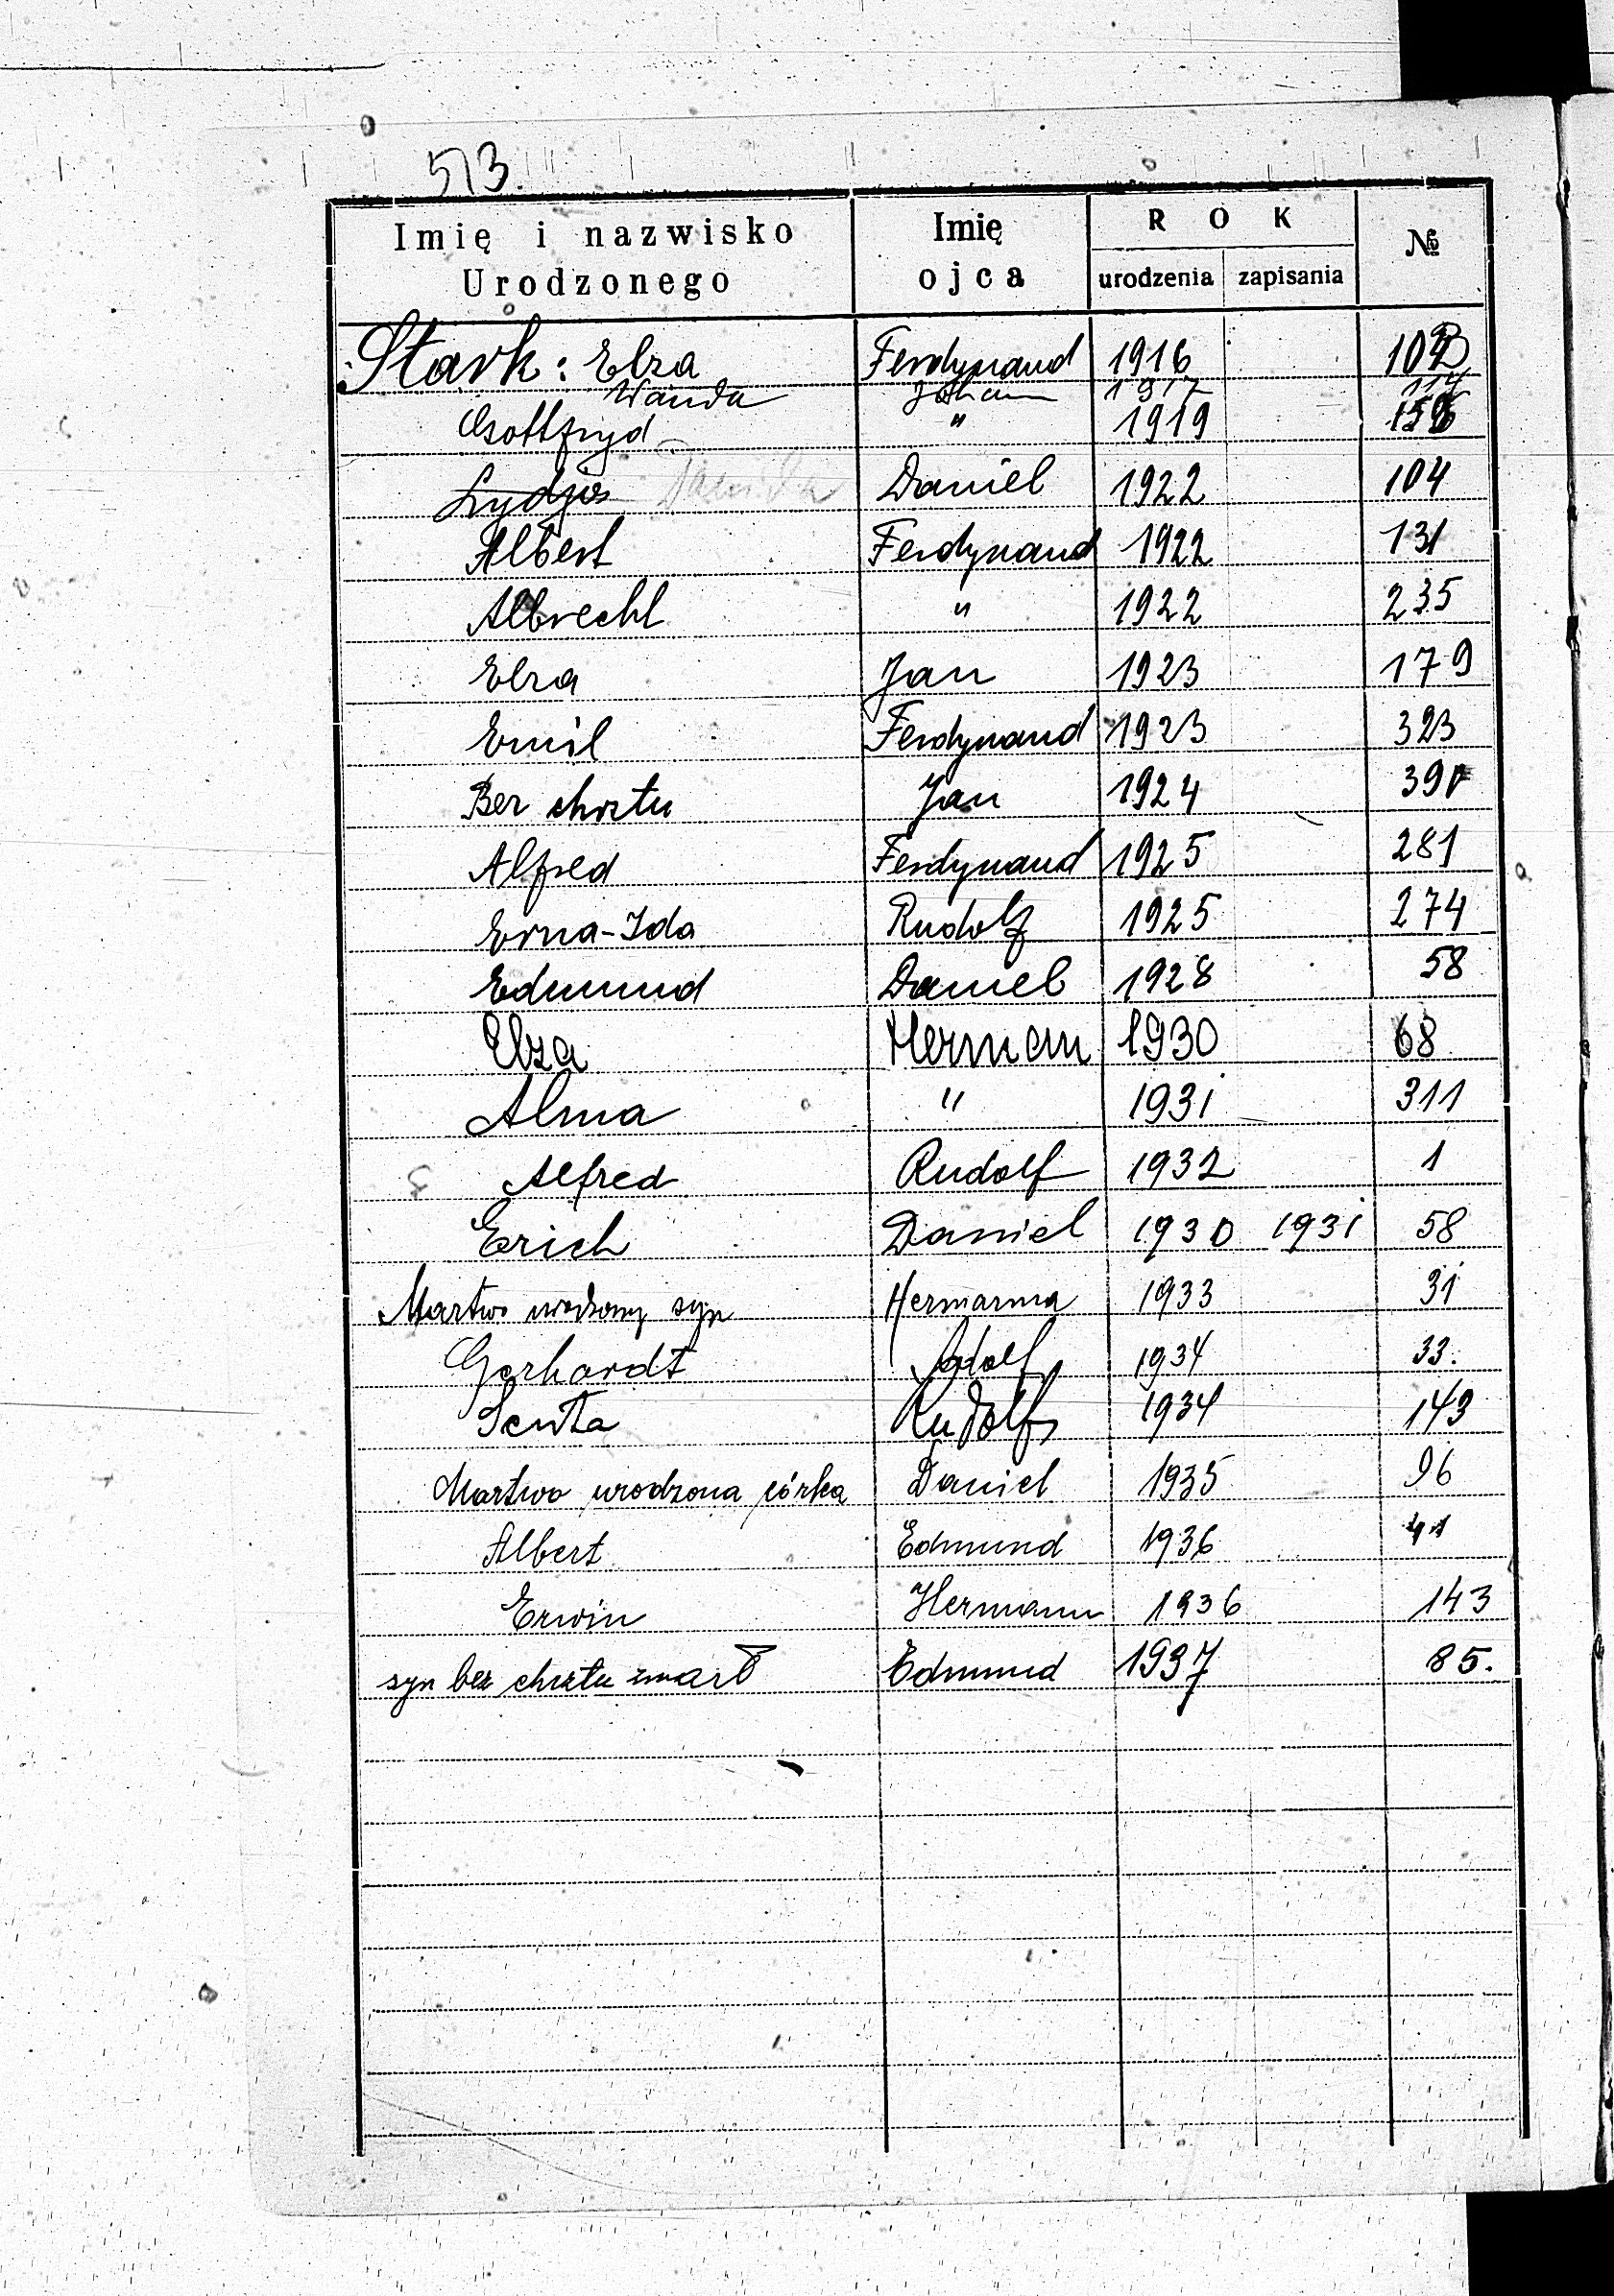 513.
Imię i nazwisko Urodzonego Imię ojca ROK urodzenia zapisania №
Stark: Elza Ferdynand 1916
Wanda Johann 1917 114
Gottfryd " 1919
Lydja Daniel 1922 104
Albert Ferdynand 1922 131
Albrecht " 1922 235
Elza Jan 1923 179
Emil Ferdynand 1923 323
Bez chrztu Jan 1924
Alfred Ferdynand 1925 281
Erna-Ida Rudolf 1925 274
Edmund Daniel 1928 58
Elza Herman 1930 68
Alma " 1931 311
Alfred Rudolf 1932 1
Erich Daniel 1930 1931 58
Martwo urodzony syn Hermanna 1933 31
Gerhardt Adolf 1934 33.
Senta Rudolf 1934 149
Martwo urodzona córka Daniel 1935 96
Albert Edmund 1936 41
Erwin Hermann 1936 143
syn bez chrztu zmarł Edmund 1937 85.